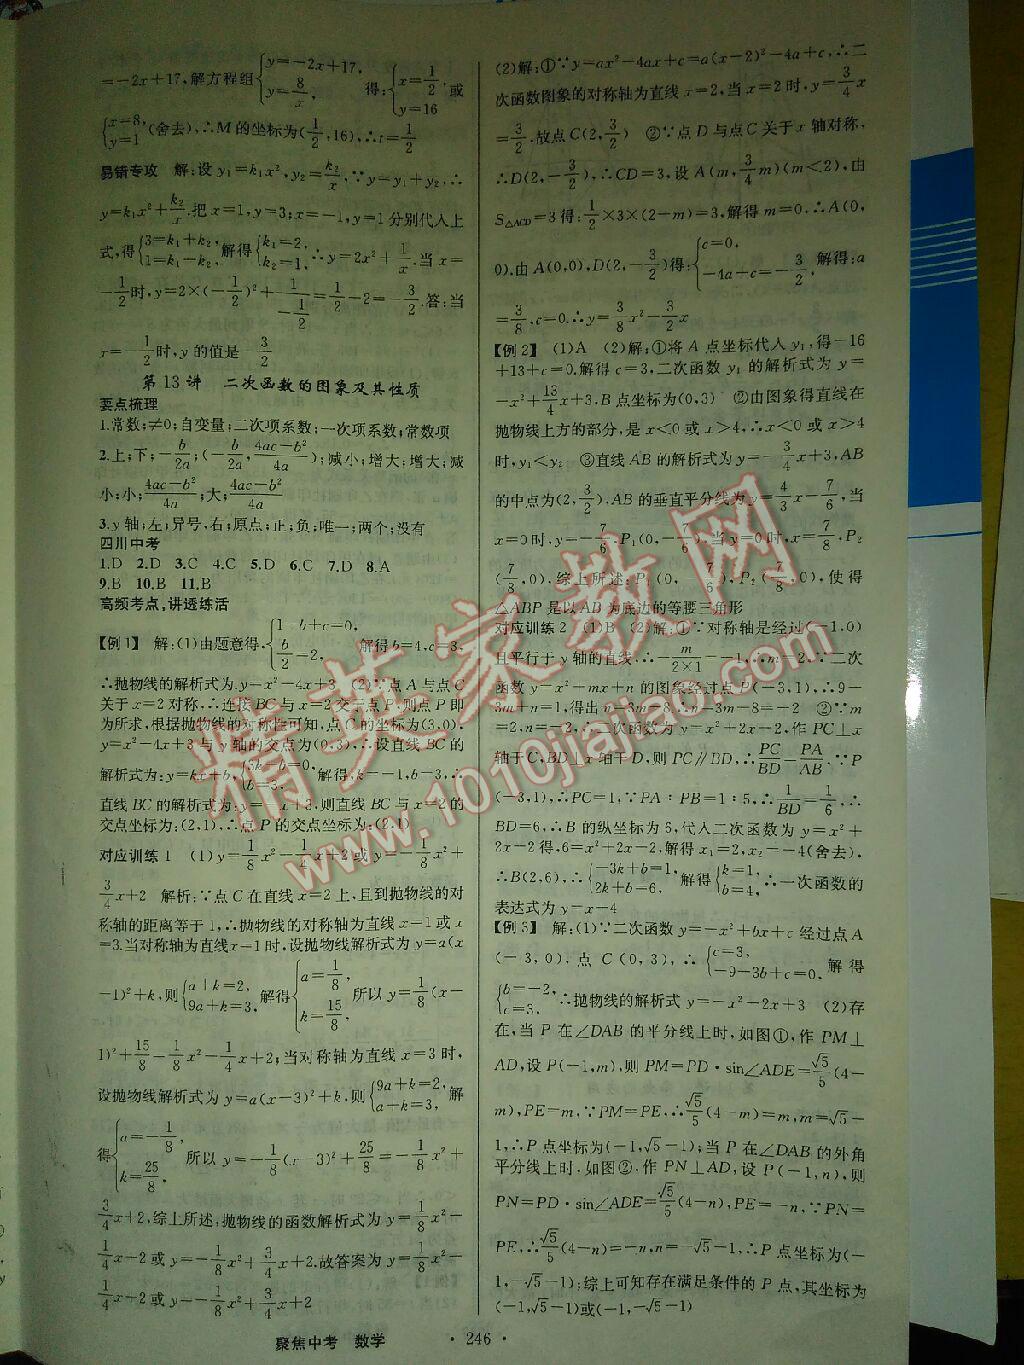 =-2x+17,解方程组{y=-2x+17, y=8/x, 得:{x=1/2, y=16 或
{x=8, y=1 (舍去),∴M的坐标为(1/2,16),∴t=1/2
易错专攻 解:设y₁=k₁x²,y₂=k₂/x,∵y=y₁+y₂,∴
y=k₁x²+k₂/x.把x=1,y=3;x=-1,y=1分别代入上
式,得{3=k₁+k₂, 1=k₁-k₂, 解得{k₁=2, k₂=1, ∴y=2x²+1/x.当x=
-1/2时,y=2×(-1/2)²+1/(-1/2)=1/2-2=-3/2.答:当
x=-1/2时,y的值是-3/2
第13讲 二次函数的图象及其性质
要点梳理
1.常数;≠0;自变量;二次项系数;一次项系数;常数项
2.上;下;-b/2a;(-b/2a,(4ac-b²)/4a);减小;增大;增大;减
小;小;(4ac-b²)/4a;大;(4ac-b²)/4a
3.y轴;左;异号,右;原点;正;负;唯一;两个;没有
四川中考
1.D 2.D 3.C 4.C 5.D 6.C 7.D 8.A
9.B 10.B 11.B
高频考点,讲透练活
【例1】 解:(1)由题意得,{1-b+c=0, b/2=2, 解得b=4,c=3,
∴抛物线的解析式为y=x²-4x+3 (2)∵点A与点C
关于x=2对称,∴连接BC与x=2交于点P,则点P即
为所求,根据抛物线的对称性可知,点C的坐标为(3,0),
y=x²-4x+3与y轴的交点为(0,3),∴设直线BC的
解析式为:y=kx+b,{3k+b=0, b=3, 解得,k=-1,b=3,∴
直线BC的解析式为:y=-x+3,则直线BC与x=2的
交点坐标为:(2,1),∴点P的交点坐标为:(2,1)
对应训练1 (1)y=1/8x²-1/4x+2或y=-1/8x²+
3/4x+2 解析:∵点C在直线x=2上,且到抛物线的对
称轴的距离等于1,∴抛物线的对称轴为直线x=1或x
=3.当对称轴为直线x=1时,设抛物线解析式为y=a(x
-1)²+k,则{a+k=2, 9a+k=3, 解得{a=1/8, k=15/8, 所以y=1/8(x-
1)²+15/8=1/8x²-1/4x+2;当对称轴为直线x=3时,
设抛物线解析式为y=a(x-3)²+k,则{9a+k=2, a+k=3, 解
得{a=-1/8, k=25/8, 所以y=-1/8(x-3)²+25/8=-1/8x²+
3/4x+2,综上所述,抛物线的函数解析式为y=1/8x²-
1/4x+2或y=-1/8x²+3/4x+2.故答案为y=1/8x²-
1/4x+2或y=-1/8x²+3/4x+2
(2)解:①∵y=ax²-4ax+c=a(x-2)²-4a+c,∴二
次函数图象的对称轴为直线x=2,当x=2时,y=3/4x
=3/2.故点C(2,3/2) ②∵点D与点C关于x轴对称,
∴D(2,-3/2),∴CD=3,设A(m,3/4m)(m<2),由
S△ACD=3得:1/2×3×(2-m)=3,解得m=0.∴A(0,
0).由A(0,0),D(2,-3/2)得:{c=0, -4a+c=-3/2, 解得:a
=3/8,c=0.∴y=3/8x²-3/2x
【例2】 (1)A (2)解:①将A点坐标代入y₁,得-16
+13+c=0.解得c=3,二次函数y₁的解析式为y=
-x²+13/4x+3.B点坐标为(0,3) ②由图象得直线在
抛物线上方的部分,是x<0或x>4,∴x<0或x>4
时,y₁<y₂ ③直线AB的解析式为y=-3/4x+3,AB
的中点为(2,3/2).AB的垂直平分线为y=4/3x-7/6,当
x=0时,y=-7/6.P₁(0,-7/6).当y=0时,x=7/8,P₂
(7/8,0).综上所述:P₁(0,-7/6),P₂(7/8,0),使得
△ABP是以AB为底边的等腰三角形
对应训练2 (1)B (2)解:①∵对称轴是经过(-1,0)
且平行于y轴的直线,∴-m/(2×1)=-1,∴m=2,∴二次
函数y=x²+mx+n的图象经过点P(-3,1),∴9-
3m+n=1,得出n=3m-8,∴n=3m-8=-2 ②∵m
=2,n=-2,∴二次函数为y=x²+2x-2,作PC⊥x
轴于C,BD⊥x轴于D,则PC∥BD,∴PC/BD=PA/AB.∵P
(-3,1),∴PC=1,∵PA:PB=1:5,∴1/BD=1/6,∴
BD=6,∴B的纵坐标为6,代入二次函数为y=x²+
2x-2得,6=x²+2x-2.解得x₁=2,x₂=-4(舍去).
∴B(2,6),∴{-3k+b=1, 2k+b=6, 解得{k=1, b=4, ∴一次函数的
表达式为y=x+4
【例3】 解:(1)∵二次函数y=-x²+bx+c经过点A
(-3,0),点C(0,3),∴{c=3, -9-3b+c=0, 解得
{b=-2, c=3, ∴抛物线的解析式y=-x²-2x+3 (2)存
在,当P在∠DAB的平分线上时,如图①,作PM⊥
AD,设P(-1,m),则PM=PD·sin∠ADE=√5/5(4-
m),PE=m,∵PM=PE,∴√5/5(4-m)=m,m=√5-
1,∴P点坐标为(-1,√5-1);当P在∠DAB的外角
平分线上时,如图②,作PN⊥AD,设P(-1,n),则
PN=PD·sin∠ADE=√5/5(4-n),PE=-n,∵PN=
PE,∴√5/5(4-n)=-n,n=-√5-1,∴P点坐标为(-
1,-√5-1);综上可知存在满足条件的P点,其坐标为
(-1,√5-1)或(-1,-√5-1)
聚焦中考 数学 ·246·
精英家教网
www.1010jiajiao.com